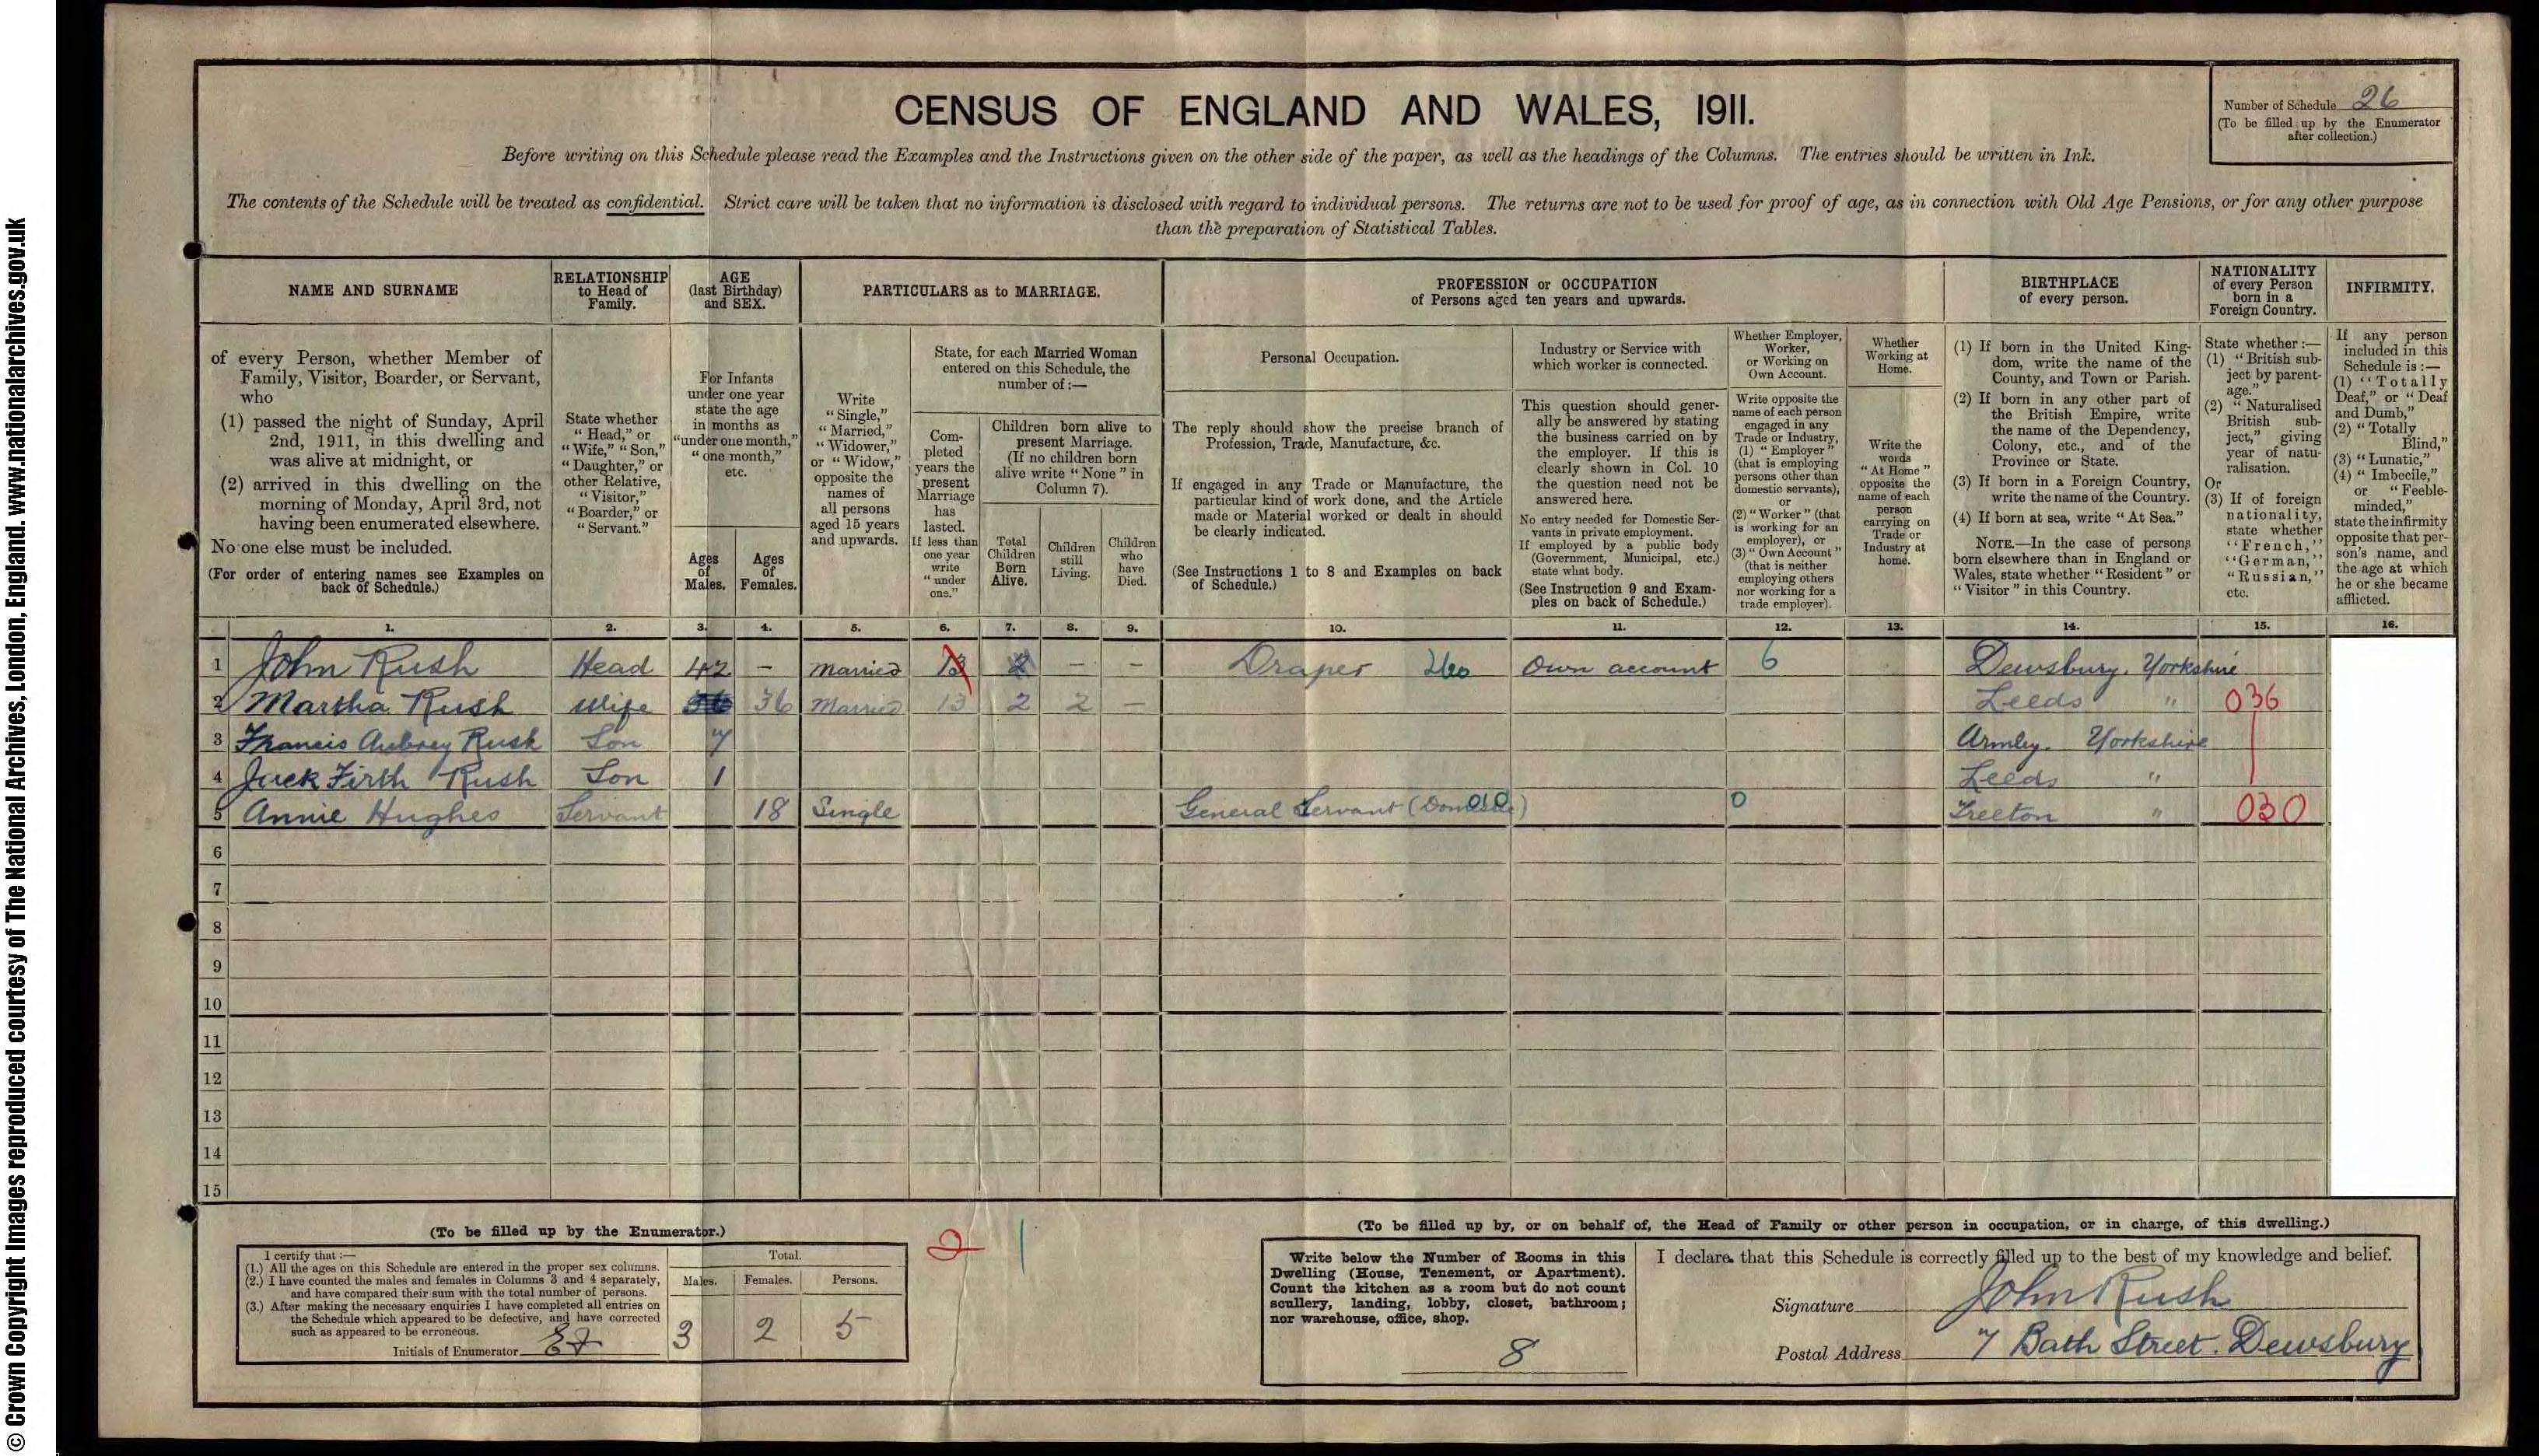 CENSUS OF ENGLAND AND WALES, 1911.
Number of Schedule 26
(To be filled up by the Enumerator
after collection.)
Before writing on this Schedule please read the Examples and the Instructions given on the other side of the paper, as well as the headings of the Columns. The entries should be written in Ink.
The contents of the Schedule will be treated as confidential. Strict care will be taken that no information is disclosed with regard to individual persons. The returns are not to be used for proof of age, as in connection with Old Age Pensions, or for any other purpose
than the preparation of Statistical Tables.
NAME AND SURNAME
RELATIONSHIP
to Head of
Family.
AGE
(last Birthday)
and SEX.
PARTICULARS as to MARRIAGE.
PROFESSION or OCCUPATION
of Persons aged ten years and upwards.
BIRTHPLACE
of every person.
NATIONALITY
of every Person
born in a
Foreign Country.
INFIRMITY.
of every Person, whether Member of
Family, Visitor, Boarder, or Servant,
who
(1) passed the night of Sunday, April
2nd, 1911, in this dwelling and
was alive at midnight, or
(2) arrived in this dwelling on the
morning of Monday, April 3rd, not
having been enumerated elsewhere.
No one else must be included.
(For order of entering names see Examples on
back of Schedule.)
State whether
"Head," or
"Wife," "Son,"
"Daughter," or
other Relative,
"Visitor,"
"Boarder," or
"Servant."
For Infants
under one year
state the age
in months as
"under one month,"
"one month,"
etc.
Ages
of
Males.
Ages
of
Females.
Write
"Single,"
"Married,"
"Widower,"
or "Widow,"
opposite the
names of
all persons
aged 15 years
and upwards.
State, for each Married Woman
entered on this Schedule, the
number of :—
Com-
pleted
years the
present
Marriage
has
lasted.
If less than
one year
write
"under
one."
Children born alive to
present Marriage.
(If no children born
alive write "None" in
Column 7).
Total
Children
Born
Alive.
Children
still
Living.
Children
who
have
Died.
Personal Occupation.
The reply should show the precise branch of
Profession, Trade, Manufacture, &c.
If engaged in any Trade or Manufacture, the
particular kind of work done, and the Article
made or Material worked or dealt in should
be clearly indicated.
(See Instructions 1 to 8 and Examples on back
of Schedule.)
Industry or Service with
which worker is connected.
This question should gener-
ally be answered by stating
the business carried on by
the employer. If this is
clearly shown in Col. 10
the question need not be
answered here.
No entry needed for Domestic Ser-
vants in private employment.
If employed by a public body
(Government, Municipal, etc.)
state what body.
(See Instruction 9 and Exam-
ples on back of Schedule.)
Whether Employer,
Worker,
or Working on
Own Account.
Write opposite the
name of each person
engaged in any
Trade or Industry,
(1) "Employer"
(that is employing
persons other than
domestic servants),
or
(2) "Worker" (that
is working for an
employer), or
(3) "Own Account"
(that is neither
employing others
nor working for a
trade employer).
Whether
Working at
Home.
Write the
words
"At Home"
opposite the
name of each
person
carrying on
Trade or
Industry at
home.
(1) If born in the United King-
dom, write the name of the
County, and Town or Parish.
(2) If born in any other part of
the British Empire, write
the name of the Dependency,
Colony, etc., and of the
Province or State.
(3) If born in a Foreign Country,
write the name of the Country.
(4) If born at sea, write "At Sea."
NOTE.—In the case of persons
born elsewhere than in England or
Wales, state whether "Resident" or
"Visitor" in this Country.
State whether :—
(1) "British sub-
ject by parent-
age."
(2) "Naturalised
British sub-
ject," giving
year of natu-
ralisation.
Or
(3) If of foreign
nationality,
state whether
"French,"
"German,"
"Russian,"
etc.
If any person
included in this
Schedule is :—
(1) "Totally
Deaf," or "Deaf
and Dumb,"
(2) "Totally
Blind,"
(3) "Lunatic,"
(4) "Imbecile,"
or "Feeble-
minded,"
state the infirmity
opposite that per-
son's name, and
the age at which
he or she became
afflicted.
1. 2. 3. 4. 5. 6. 7. 8. 9. 10. 11. 12. 13. 14. 15. 16.
1 John Rush Head 42 – Married 13 2 – – Draper Own account 6 Dewsbury. Yorkshire
2 Martha Rush Wife 36 Married 13 2 2 – Leeds " 036
3 Francis Aubrey Rush Son 7 Armley. Yorkshire
4 Jack Firth Rush Son 1 Leeds "
5 Annie Hughes Servant 18 Single General Servant (Domestic) 010 0 Treeton " 030
6
7
8
9
10
11
12
13
14
15
(To be filled up by the Enumerator.)
I certify that :—
(1.) All the ages on this Schedule are entered in the proper sex columns.
(2.) I have counted the males and females in Columns 3 and 4 separately,
and have compared their sum with the total number of persons.
(3.) After making the necessary enquiries I have completed all entries on
the Schedule which appeared to be defective, and have corrected
such as appeared to be erroneous.
Initials of Enumerator
Total.
Males. Females. Persons.
3 2 5
2 1
(To be filled up by, or on behalf of, the Head of Family or other person in occupation, or in charge, of this dwelling.)
Write below the Number of Rooms in this
Dwelling (House, Tenement, or Apartment).
Count the kitchen as a room but do not count
scullery, landing, lobby, closet, bathroom;
nor warehouse, office, shop.
8
I declare that this Schedule is correctly filled up to the best of my knowledge and belief.
Signature John Rush
Postal Address 7 Bath Street. Dewsbury
© Crown Copyright Images reproduced courtesy of The National Archives, London, England. www.nationalarchives.gov.uk